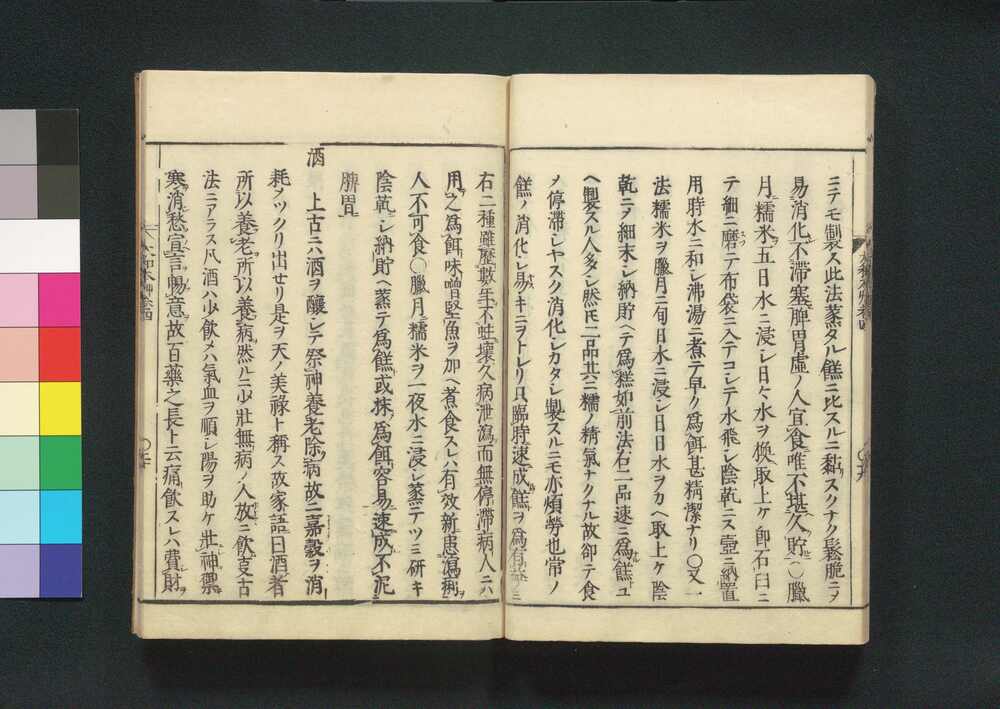 ニテモ製ス此法蒸タル餻ニ比スルニ黏スクナク鬆脆ニヲ
易消化不滯塞脾胃虛ノ人宜食唯不堪久貯○臘
月糯米ヲ五日水ニ浸シ日々水ヲ換取上ケ卽石臼ニ
テ細ニ磨テ布袋ニ入テコシテ水飛シ陰乾ニス壺ニ納置
用時水ニ和シ沸湯ニ煮テ早ク爲餌甚精潔ナリ○又一
法糯米ヲ臘月三旬日水ニ浸シ日日水ヲカヘ取上ケ陰
乾ニヲ細末シ納貯ヘテ爲餻如前法右二品速ニ爲餻ユ
ヘ製スル人多シ然𪜈二品共ニ糯ノ精氣ナクナル故卻テ食
ノ停滯シヤスク消化シカタシ製スルニモ亦煩勞也常ノ
餻ノ消化シ易キニヲトレリ只臨時速成餻ヲ爲有益ノミ
右二種雖歷數年不蛀壞久病泄瀉而無停滯病人ニハ
用之爲餌味噌堅魚ヲ加ヘ煮食スレハ有效新患瀉痢
人不可食○臘月糯米ヲ一夜水ニ浸シ蒸テツミ研キ
陰乾シ納貯ヘ蒸テ爲餻或抹爲餌容易速成不泥
脾胃
酒 上古ニハ酒ヲ釀シテ祭神養老除病故ニ嘉穀ヲ消
耗ヲツクリ出セリ是ヲ天ノ美祿ト稱ス故家語曰酒者
所以養老所以養病然ルニ少壯無病ノ人放ニ飮叓古
法ニアラス凡酒ハ少飮メハ氣血ヲ順シ陽ヲ助ケ壯神禦
寒消愁宜言暢意故百藥之長ト云痛飮スレハ費財